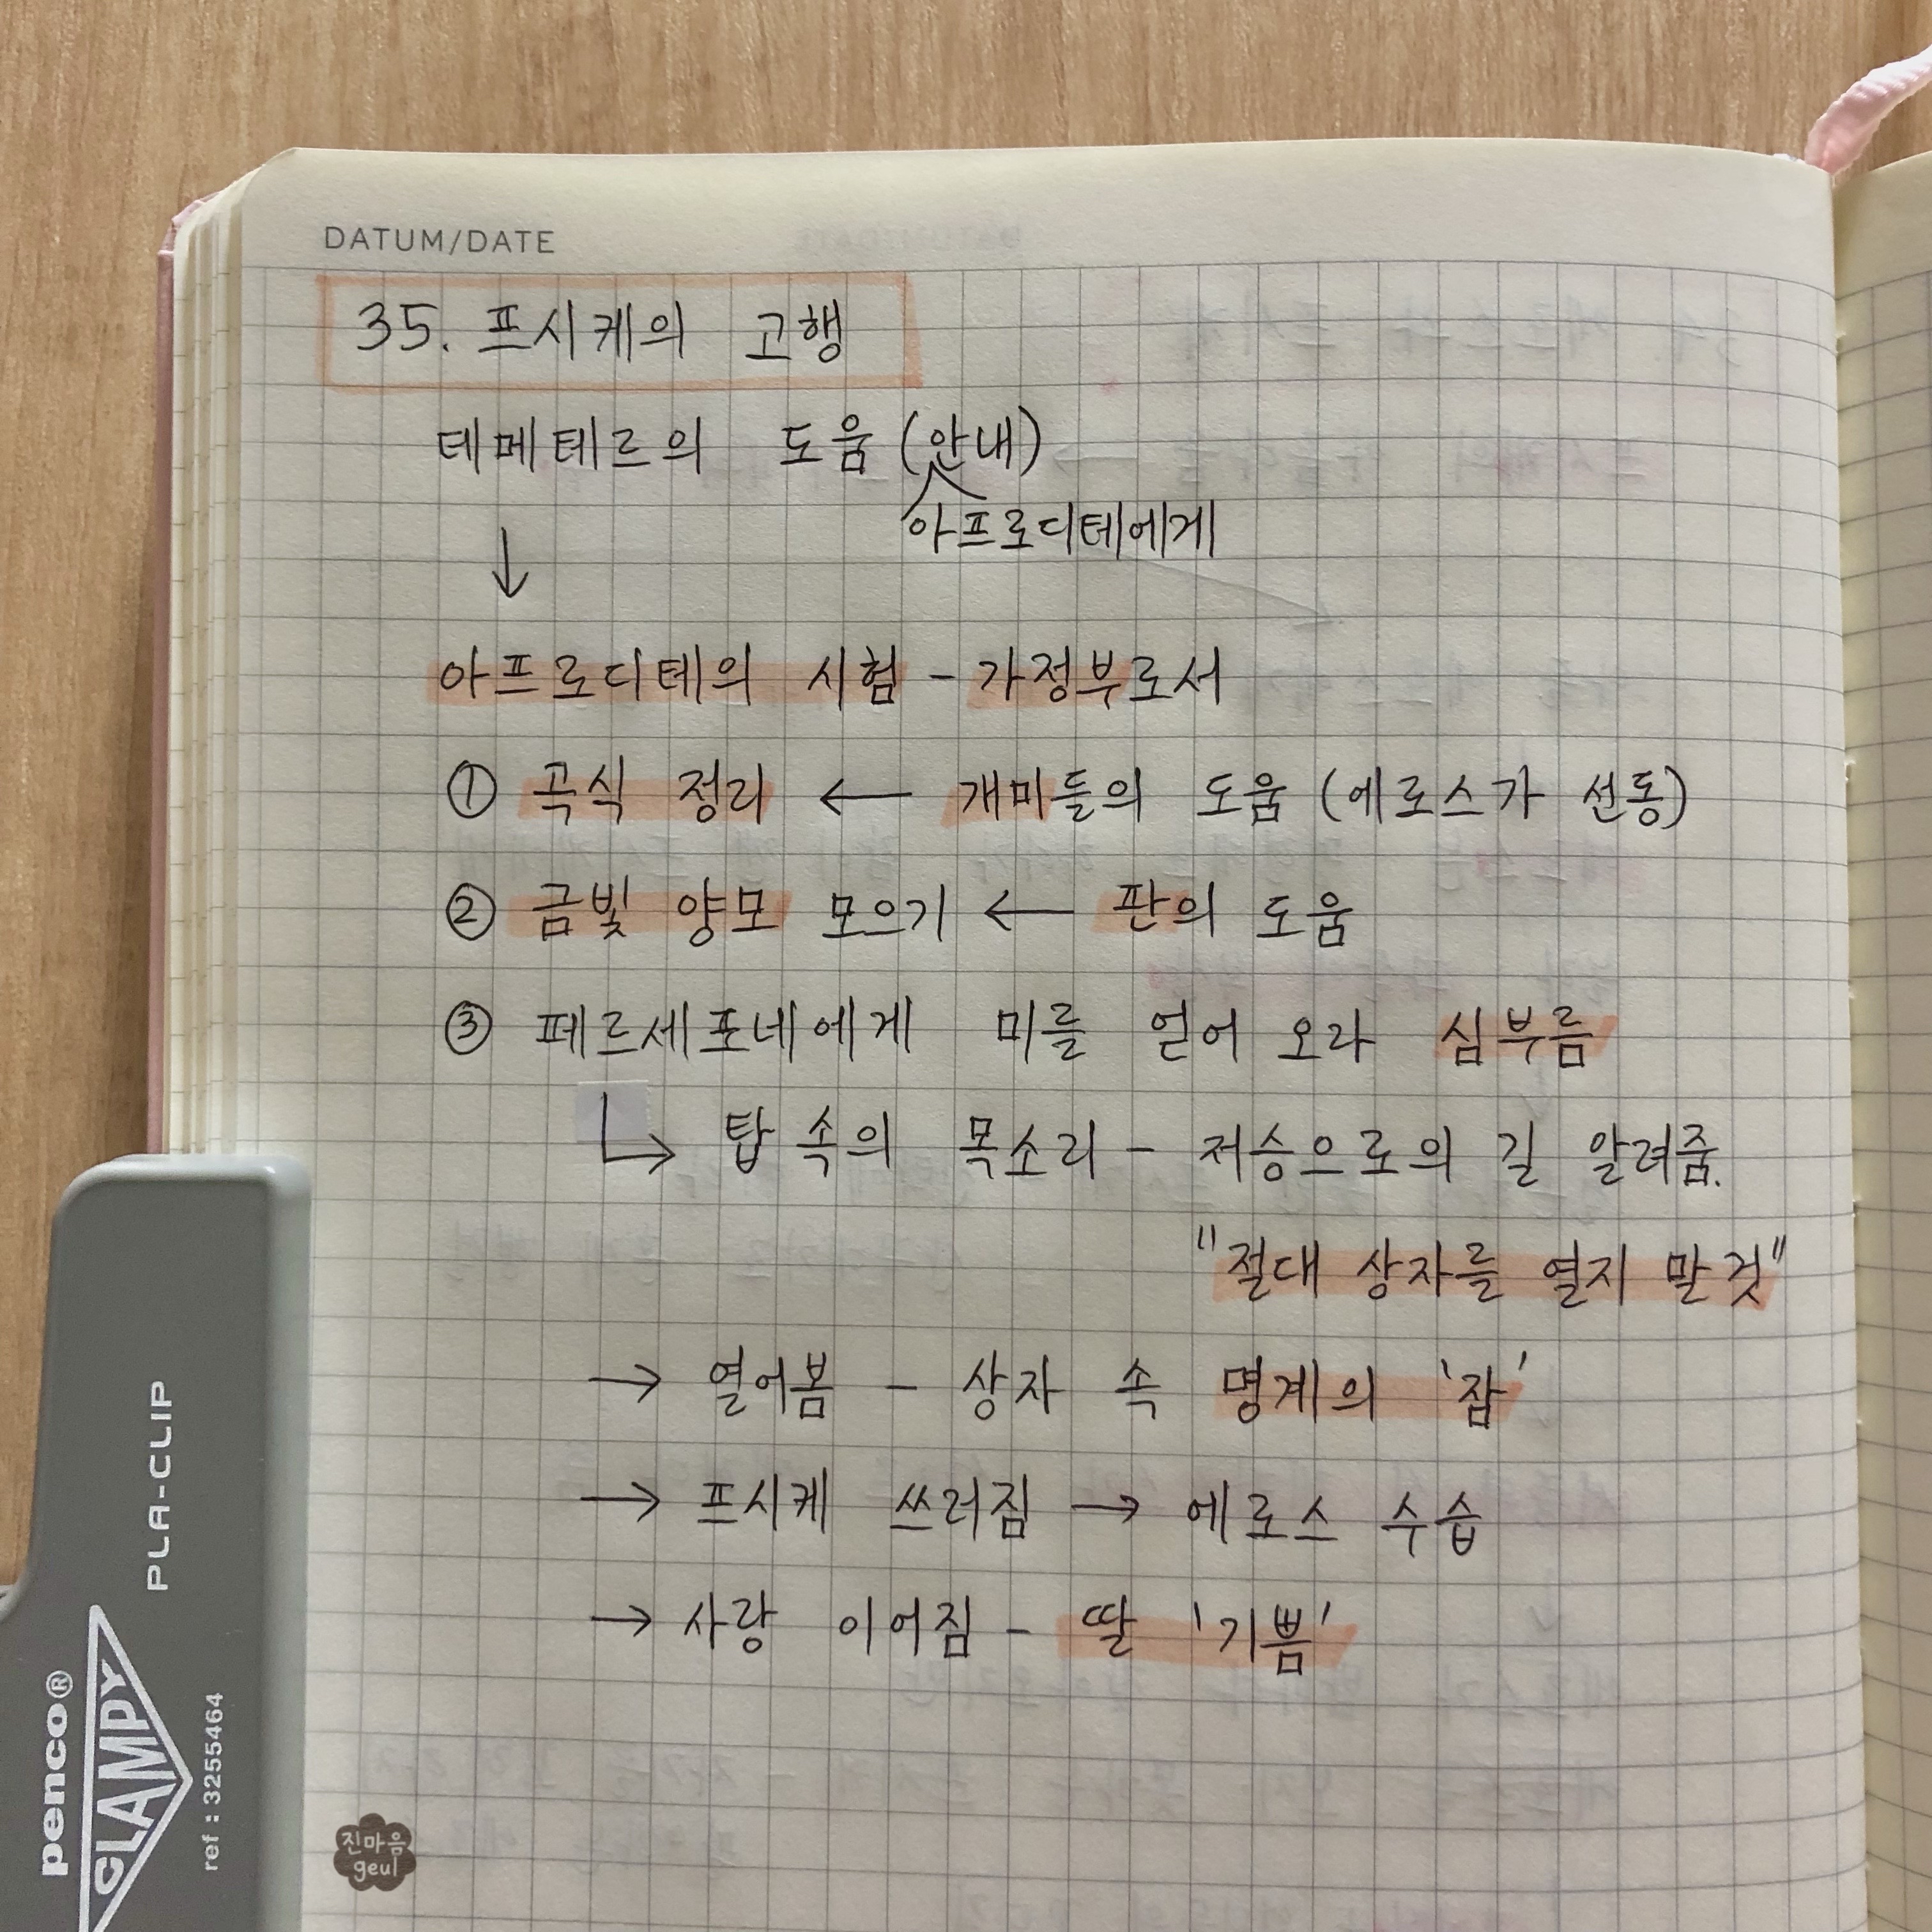 DATUM/DATE
35. 프시케의 고행
테메테르의 도움 (안내)
아프로디테에게
↓
아프로디테의 시험 - 가정부로서
① 곡식 정리 ← 개미들의 도움 (에로스가 선동)
② 금빛 양모 모으기 ← 판의 도움
③ 페르세포네에게 미를 얻어 오라 심부름
↳ 탑 속의 목소리 - 저승으로의 길 알려줌.
"절대 상자를 열지 말 것"
→ 열어봄 - 상자 속 명계의 '잠'
→ 프시케 쓰러짐 → 에로스 수습
→ 사랑 이어짐 - 딸 '기쁨'
PLA-CLIP
penco®
CLAMPY
ref : 3255464
진마음
geul